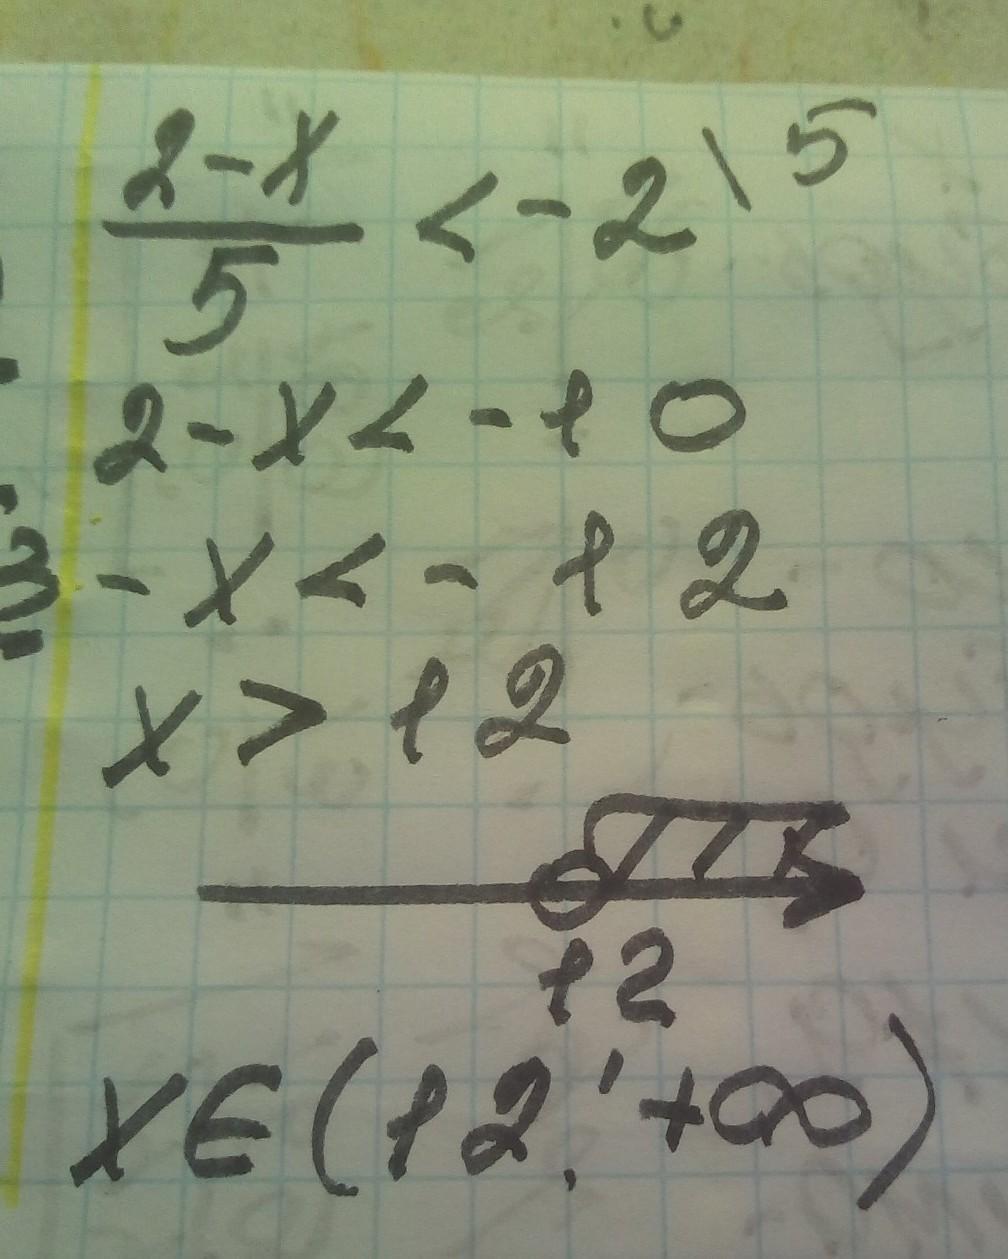 (2-x)/5 < -2 \ 5
2-x < -10
-x < -12
x > 12
12
x∈(12; +∞)
3